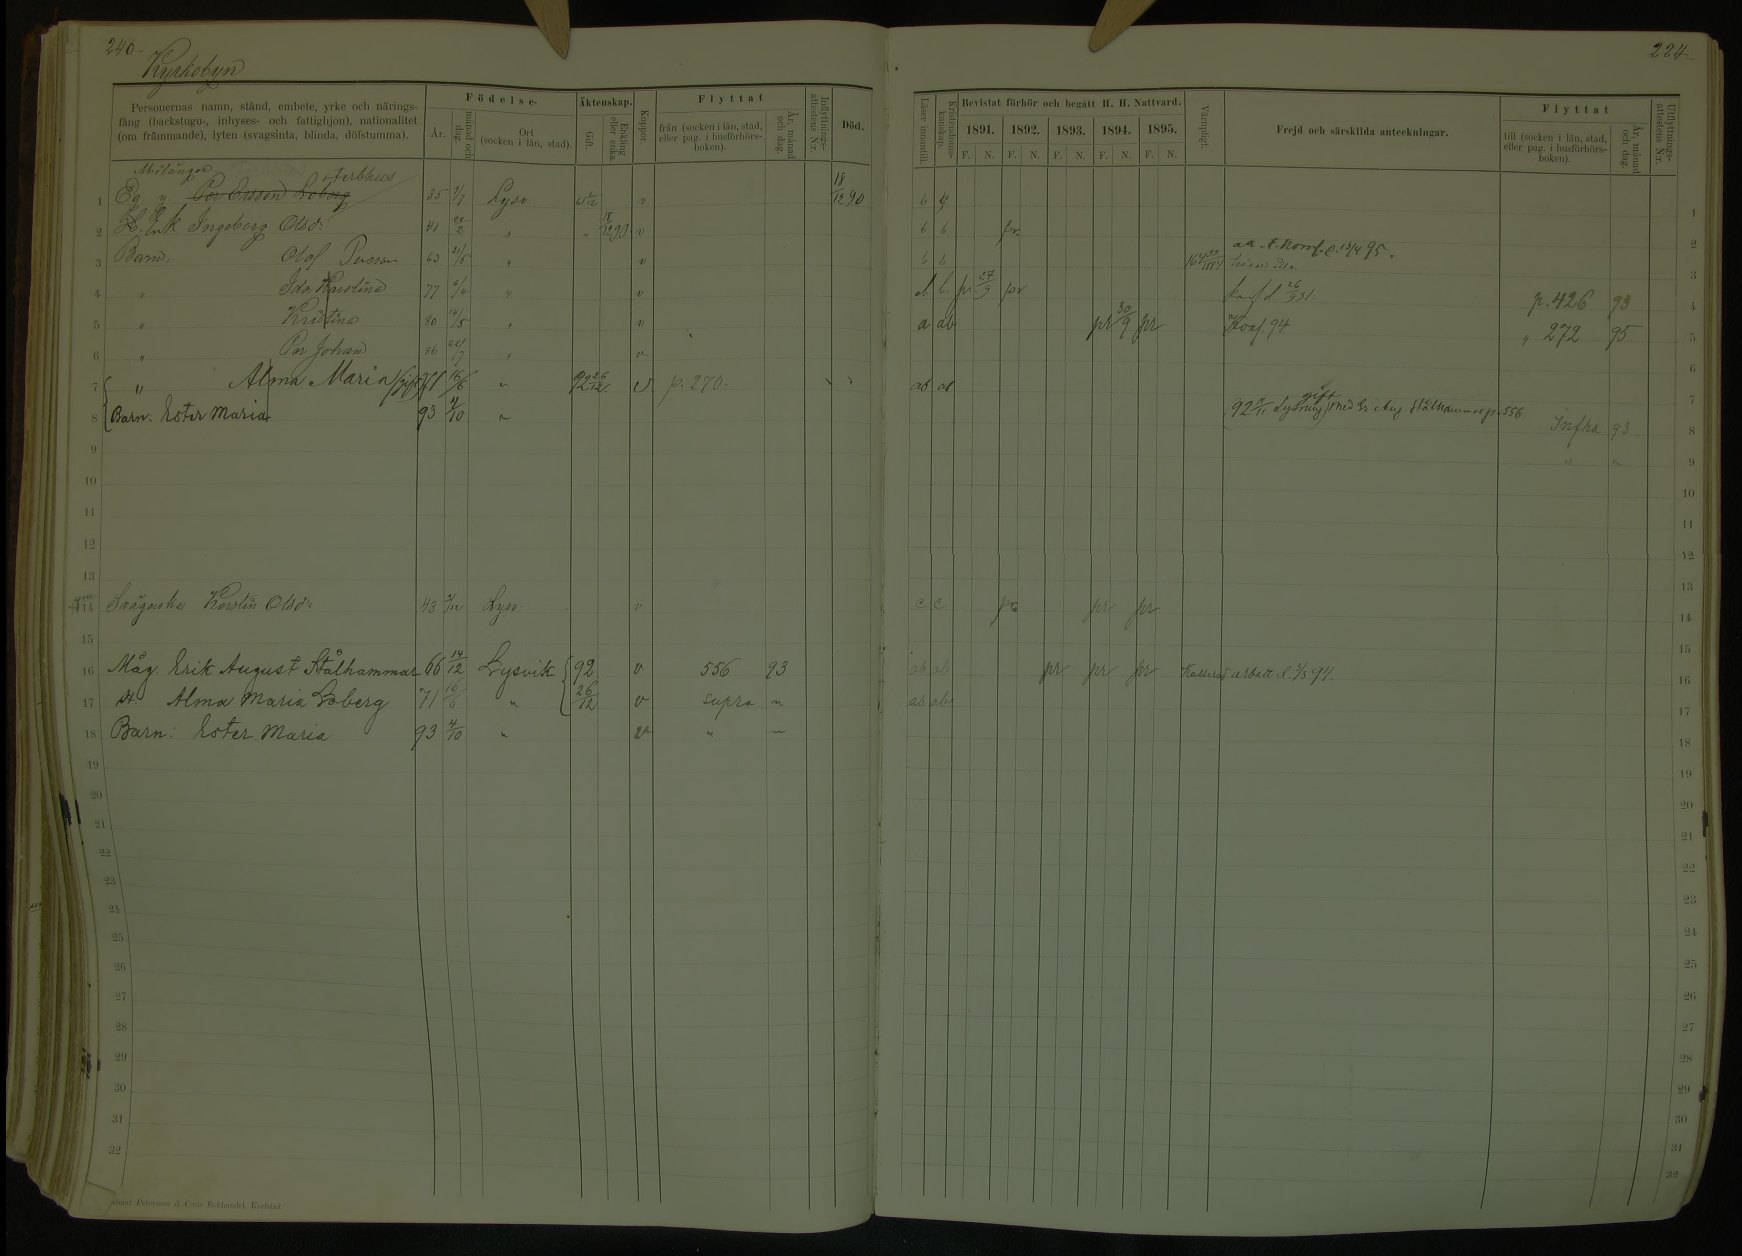 240.
Kyrkobyn
Personernas namn, stånd, embete, yrke och närings-
fång (backstugu-, inhyses- och fattighjon), nationalitet
(om främmande), lyten (svagsinta, blinda, döfstumma).
Födelse-
År.
månad och dag.
Ort
(socken i län, stad).
Äktenskap.
Gift.
Enkling eller enka.
Koppor.
Flyttat
från (socken i län, stad,
eller pag. i husförhörs-
boken).
År, månad och dag.
Inflyttnings-attestens N:r.
Död.
1 Eg. Per Ersson Loberg sterbhus 35 Lysv. v 18/12 90
2 Enk. Ingeborg Olsdr 41 " 18/12 90 v
3 Barn: Olof Persson 63 " v
4 " Ida Karolina 77 " v
5 " Kristina 80 " v
6 " Per Johan 86 " v
7 " Alma Maria (gift) 71 16/6 " 92 26/12 v p. 270.
8 Barn. Ester Maria 93 4/10 "
9
10
11
12
13
14 Svägerska Kerstin Olsdr 43 Lysv. v
15
16 Måg. Erik August Stålhammar 66 14/12 Lysvik 92 v 556 93
17 H. Alma Maria Loberg 71 16/6 " 26/12 v supra "
18 Barn: Ester Maria 93 4/10 " v " "
19
20
21
22
23
24
25
26
27
28
29
30
31
32
Petersson & C:nis Bokhandel, Karlstad
224
Läser innantill.
Kristendoms-kunskap.
Bevistat förhör och begått H. H. Nattvard.
1891. 1892. 1893. 1894. 1895.
F. N. F. N. F. N. F. N. F. N.
Värnpligt.
Frejd och särskilda anteckningar.
Flyttat
till (socken i län, stad,
eller pag. i husförhörs-
boken).
År, månad och dag.
Utflyttnings-attestens N:r.
b b 1
b b pr 2
b b 3
b b pr 27/9 pr konf. d. 26/9 91. p. 426 93 4
a ab pr 30/9 pr Konf 94. " 272 95 5
6
ab ab gift 7
(92 Lysning) med Er. Aug. Stålhammar p. 556. Infra 93 8
" " 9
10
11
12
13
c c pr pr pr 14
15
ab ab pr pr pr 94. 16
ab ab 17
18
19
20
21
22
23
24
25
26
27
28
29
30
31
32